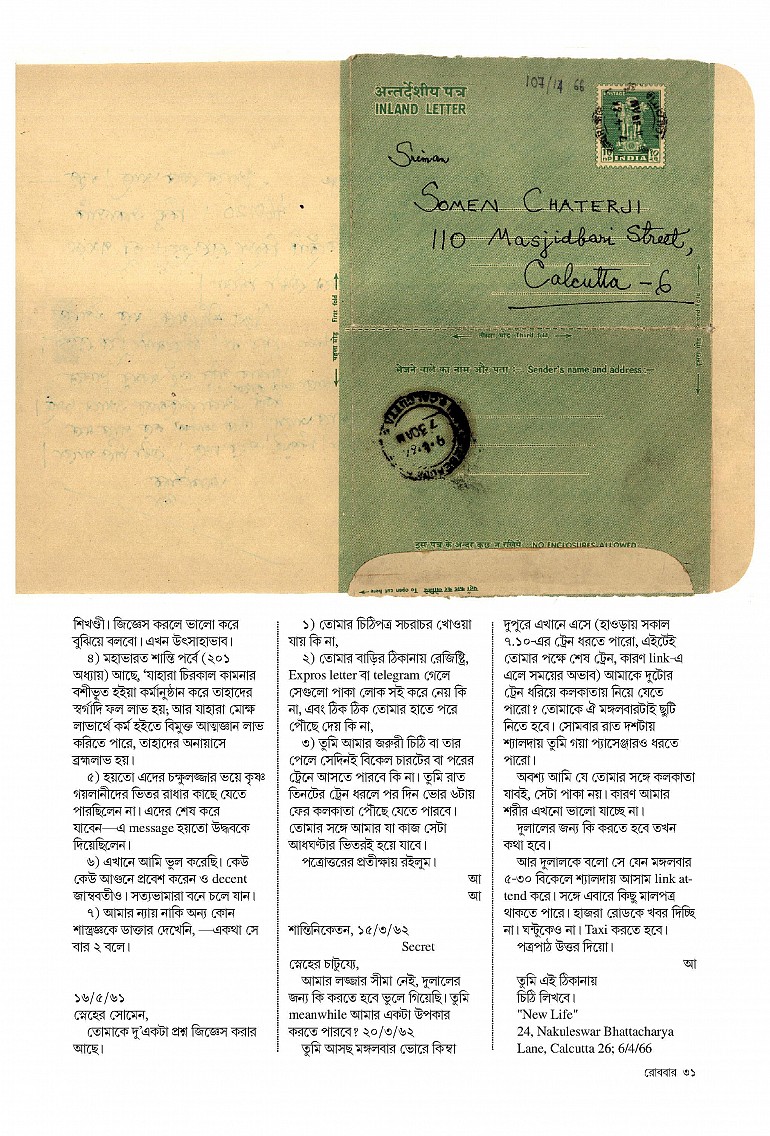 107/14 66
अन्तर्देशीय पत्र
INLAND LETTER
INDIA
Sriman
SOMEN CHATERJI
110 Masjidbari Street,
Calcutta - 6
पहला मोड़ First fold
तीसरा मोड़ Third fold
दूसरा मोड़ Second fold
भेजने वाले का नाम और पता :- Sender's name and address :-
7 30AM
इस पत्र के अन्दर कुछ न रखिये NO ENCLOSURES ALLOWED
To open cut here
শিখণ্ডী। জিজ্ঞেস করলে ভালো করে
বুঝিয়ে বলবো। এখন উৎসাহাভাব।
৪) মহাভারত শান্তি পর্বে (২০১
অধ্যায়) আছে, 'যাহারা চিরকাল কামনার
বশীভূত হইয়া কর্মানুষ্ঠান করে তাহাদের
স্বর্গাদি ফল লাভ হয়; আর যাহারা মোক্ষ
লাভার্থে কর্ম হইতে বিমুক্ত আত্মজ্ঞান লাভ
করিতে পারে, তাহাদের অনায়াসে
ব্রহ্মলাভ হয়।
৫) হয়তো এদের চক্ষুলজ্জার ভয়ে কৃষ্ণ
গয়লানীদের ভিতর রাধার কাছে যেতে
পারছিলেন না। এদের শেষ করে
যাবেন—এ message হয়তো উদ্ধবকে
দিয়েছিলেন।
৬) এখানে আমি ভুল করেছি। কেউ
কেউ আগুনে প্রবেশ করেন ও decent
জাম্ববতীও। সত্যভামারা বনে চলে যান।
৭) আমার ন্যায় নাকি অন্য কোন
শাস্ত্রজ্ঞকে ডাক্তার দেখেনি, —একথা সে
বার ২ বলে।
১৬/৫/৬১
স্নেহের সোমেন,
তোমাকে দু'একটা প্রশ্ন জিজ্ঞেস করার
আছে।
১) তোমার চিঠিপত্র সচরাচর খোওয়া
যায় কি না,
২) তোমার বাড়ির ঠিকানায় রেজিষ্ট্রি,
Expros letter বা telegram গেলে
সেগুলো পাকা লোক সই করে নেয় কি
না, এবং ঠিক ঠিক তোমার হাতে পরে
পৌঁছে দেয় কি না,
৩) তুমি আমার জরুরী চিঠি বা তার
পেলে সেদিনই বিকেল চারটের বা পরের
ট্রেনে আসতে পারবে কি না। তুমি রাত
তিনটের ট্রেন ধরলে পর দিন ভোর ৬টায়
ফের কলকাতা পৌঁছে যেতে পারবে।
তোমার সঙ্গে আমার যা কাজ সেটা
আধঘণ্টার ভিতরই হয়ে যাবে।
পত্রোত্তরের প্রতীক্ষায় রইলুম।
আ
আ
শান্তিনিকেতন, ১৫/৩/৬২
Secret
স্নেহের চাটুয্যে,
আমার লজ্জার সীমা নেই, দুলালের
জন্য কি করতে হবে ভুলে গিয়েছি। তুমি
meanwhile আমার একটা উপকার
করতে পারবে? ২০/৩/৬২
তুমি আসছ মঙ্গলবার ভোরে কিম্বা
দুপুরে এখানে এসে (হাওড়ায় সকাল
৭.১০-এর ট্রেন ধরতে পারো, এইটেই
তোমার পক্ষে শেষ ট্রেন, কারণ link-এ
এলে সময়ের অভাব) আমাকে দুটোর
ট্রেন ধরিয়ে কলকাতায় নিয়ে যেতে
পারো? তোমাকে ঐ মঙ্গলবারটাই ছুটি
নিতে হবে। সোমবার রাত দশটায়
শ্যালদায় তুমি গয়া প্যাসেঞ্জারও ধরতে
পারো।
অবশ্য আমি যে তোমার সঙ্গে কলকাতা
যাবই, সেটা পাকা নয়। কারণ আমার
শরীর এখনো ভালো যাচ্ছে না।
দুলালের জন্য কি করতে হবে তখন
কথা হবে।
আর দুলালকে বলো সে যেন মঙ্গলবার
৫-৩০ বিকেলে শ্যালদায় আসাম link at-
tend করে। সঙ্গে এবারে কিছু মালপত্র
থাকতে পারে। হাজরা রোডকে খবর দিচ্ছি
না। ঘন্টুকেও না। Taxi করতে হবে।
পত্রপাঠ উত্তর দিয়ো।
আ
তুমি এই ঠিকানায়
চিঠি লিখবে।
"New Life"
24, Nakuleswar Bhattacharya
Lane, Calcutta 26; 6/4/66
রোববার ৩১